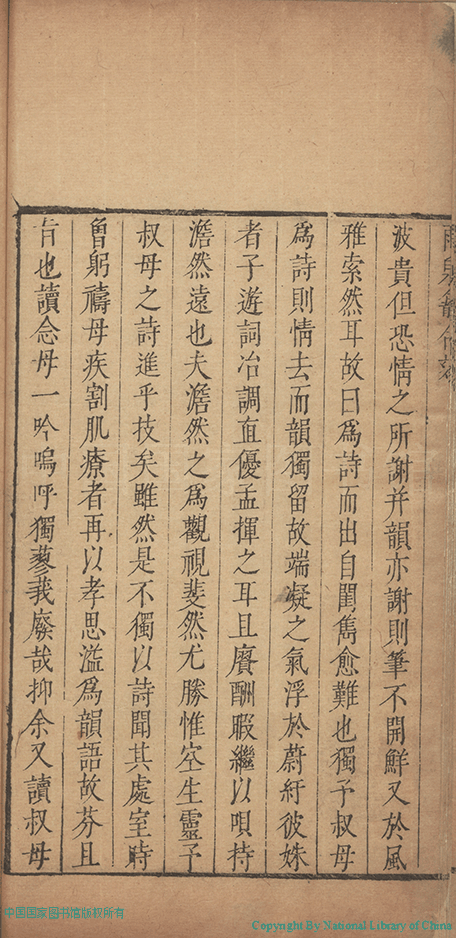 波貴但恐情之所謝并韻亦謝則筆不開鮮又於風
雅索然耳故曰為詩而出自閨雋愈難也獨予叔母
為詩則情去而韻獨留故端凝之氣浮於蔚紆彼姝
者子遊詞冶調直優孟揮之耳且賡酬暇繼以唄持
澹然遠也夫澹然之為觀視斐然尤勝惟空生靈予
叔母之詩進乎技矣雖然是不獨以詩聞其處室時
曾躬禱母疾割肌療者再以孝思溢為韻語故芬且
旨也讀念母一吟嗚呼獨蓼莪廢哉抑余又讀叔母
中国国家图书馆版权所有
Copyright By National Library of China